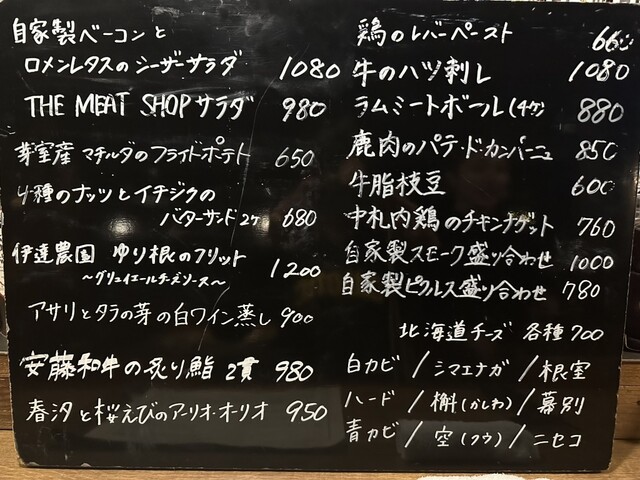 自家製ベーコンと
ロメンレタスのシーザーサラダ 1080
THE MEAT SHOPサラダ 980
芽室産 マチルダのフライドポテト 650
4種のナッツとイチジクの
バターサンド2ケ 680
伊達農園 ゆり根のフリット
〜グリュイエールチーズソース〜 1200
アサリとタラの芽の白ワイン蒸し 900
安藤和牛の炙り鮨 2貫 980
春汐と桜えびのアーリオ・オーリオ 950
鶏のレバーペースト 660
牛のハツ刺し 1080
ラムミートボール(4ケ) 880
鹿肉のパテ・ド・カンパーニュ 850
牛脂枝豆 600
中札内鶏のチキンナゲット 760
自家製スモーク盛り合わせ 1000
自家製ピクルス盛り合わせ 780
北海道チーズ 各種700
白カビ / シマエナガ / 根室
ハード / 槲(かしわ) / 幕別
青カビ / 空(クウ) / ニセコ